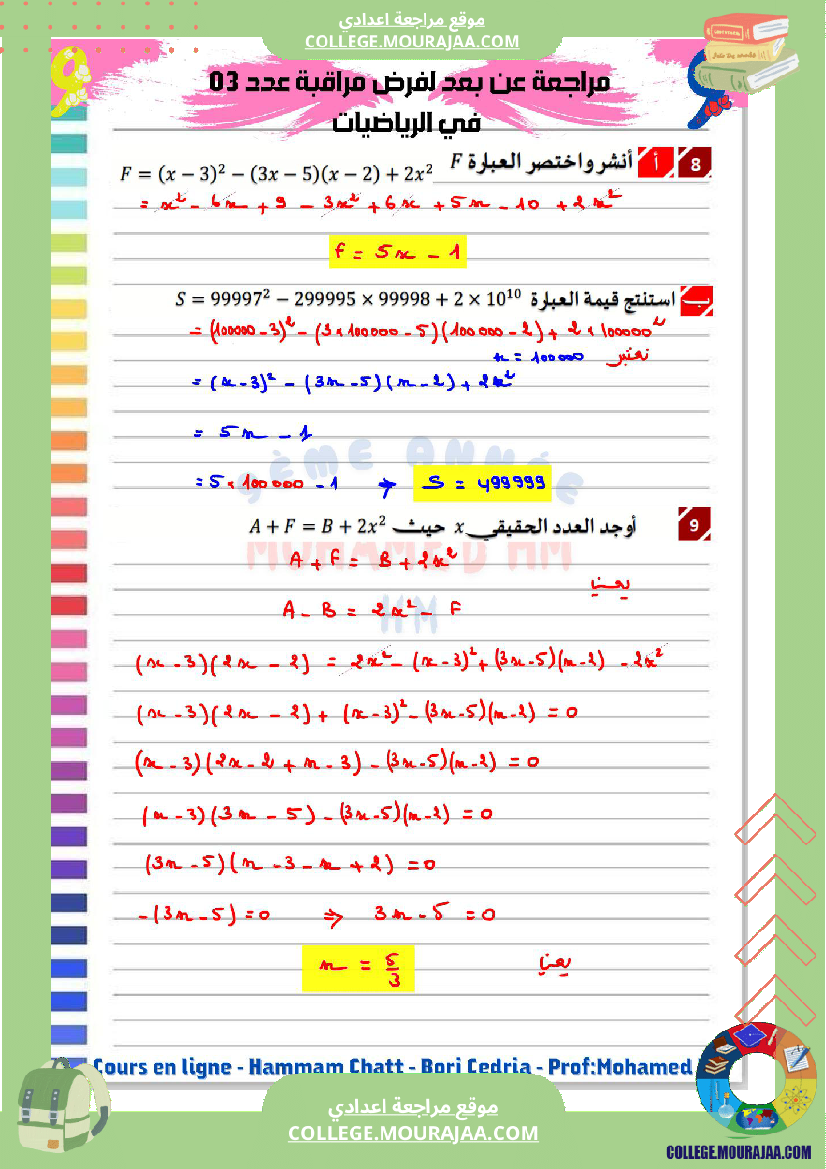 موقع مراجعة اعدادي
COLLEGE.MOURAJAA.COM
مراجعة عن بعد لفرض مراقبة عدد 03
في الرياضيات
8 أ أنشر واختصر العبارة F F = (x − 3)² − (3x − 5)(x − 2) + 2x²
= x² - 6x + 9 - 3x² + 6x + 5x - 10 + 2x²
F = 5x - 1
ب استنتج قيمة العبارة S = 99997² − 299995 × 99998 + 2 × 10¹⁰
= (100000-3)² - (3×100000-5)(100000-2) + 2×100000²
نعتبر x = 100000
= (x-3)² - (3x-5)(x-2) + 2x²
= 5x - 1
= 5×100000 - 1 → S = 499999
9ÈME ANNÉE
9 أوجد العدد الحقيقي x حيث A + F = B + 2x²
MOHAMMED HM
A + F = B + 2x²
يعني
A - B = 2x² - F
HM
(x-3)(2x-2) = 2x² - (x-3)² + (3x-5)(x-2) - 2x²
(x-3)(2x-2) + (x-3)² - (3x-5)(x-2) = 0
(x-3)(2x-2+x-3) - (3x-5)(x-2) = 0
(x-3)(3x-5) - (3x-5)(x-2) = 0
(3x-5)(x-3-x+2) = 0
-(3x-5) = 0 ⇒ 3x-5 = 0
يعني x = 5/3
Cours en ligne - Hammam Chatt - Borj Cedria - Prof:Mohamed
موقع مراجعة اعدادي
COLLEGE.MOURAJAA.COM
COLLEGE.MOURAJAA.COM